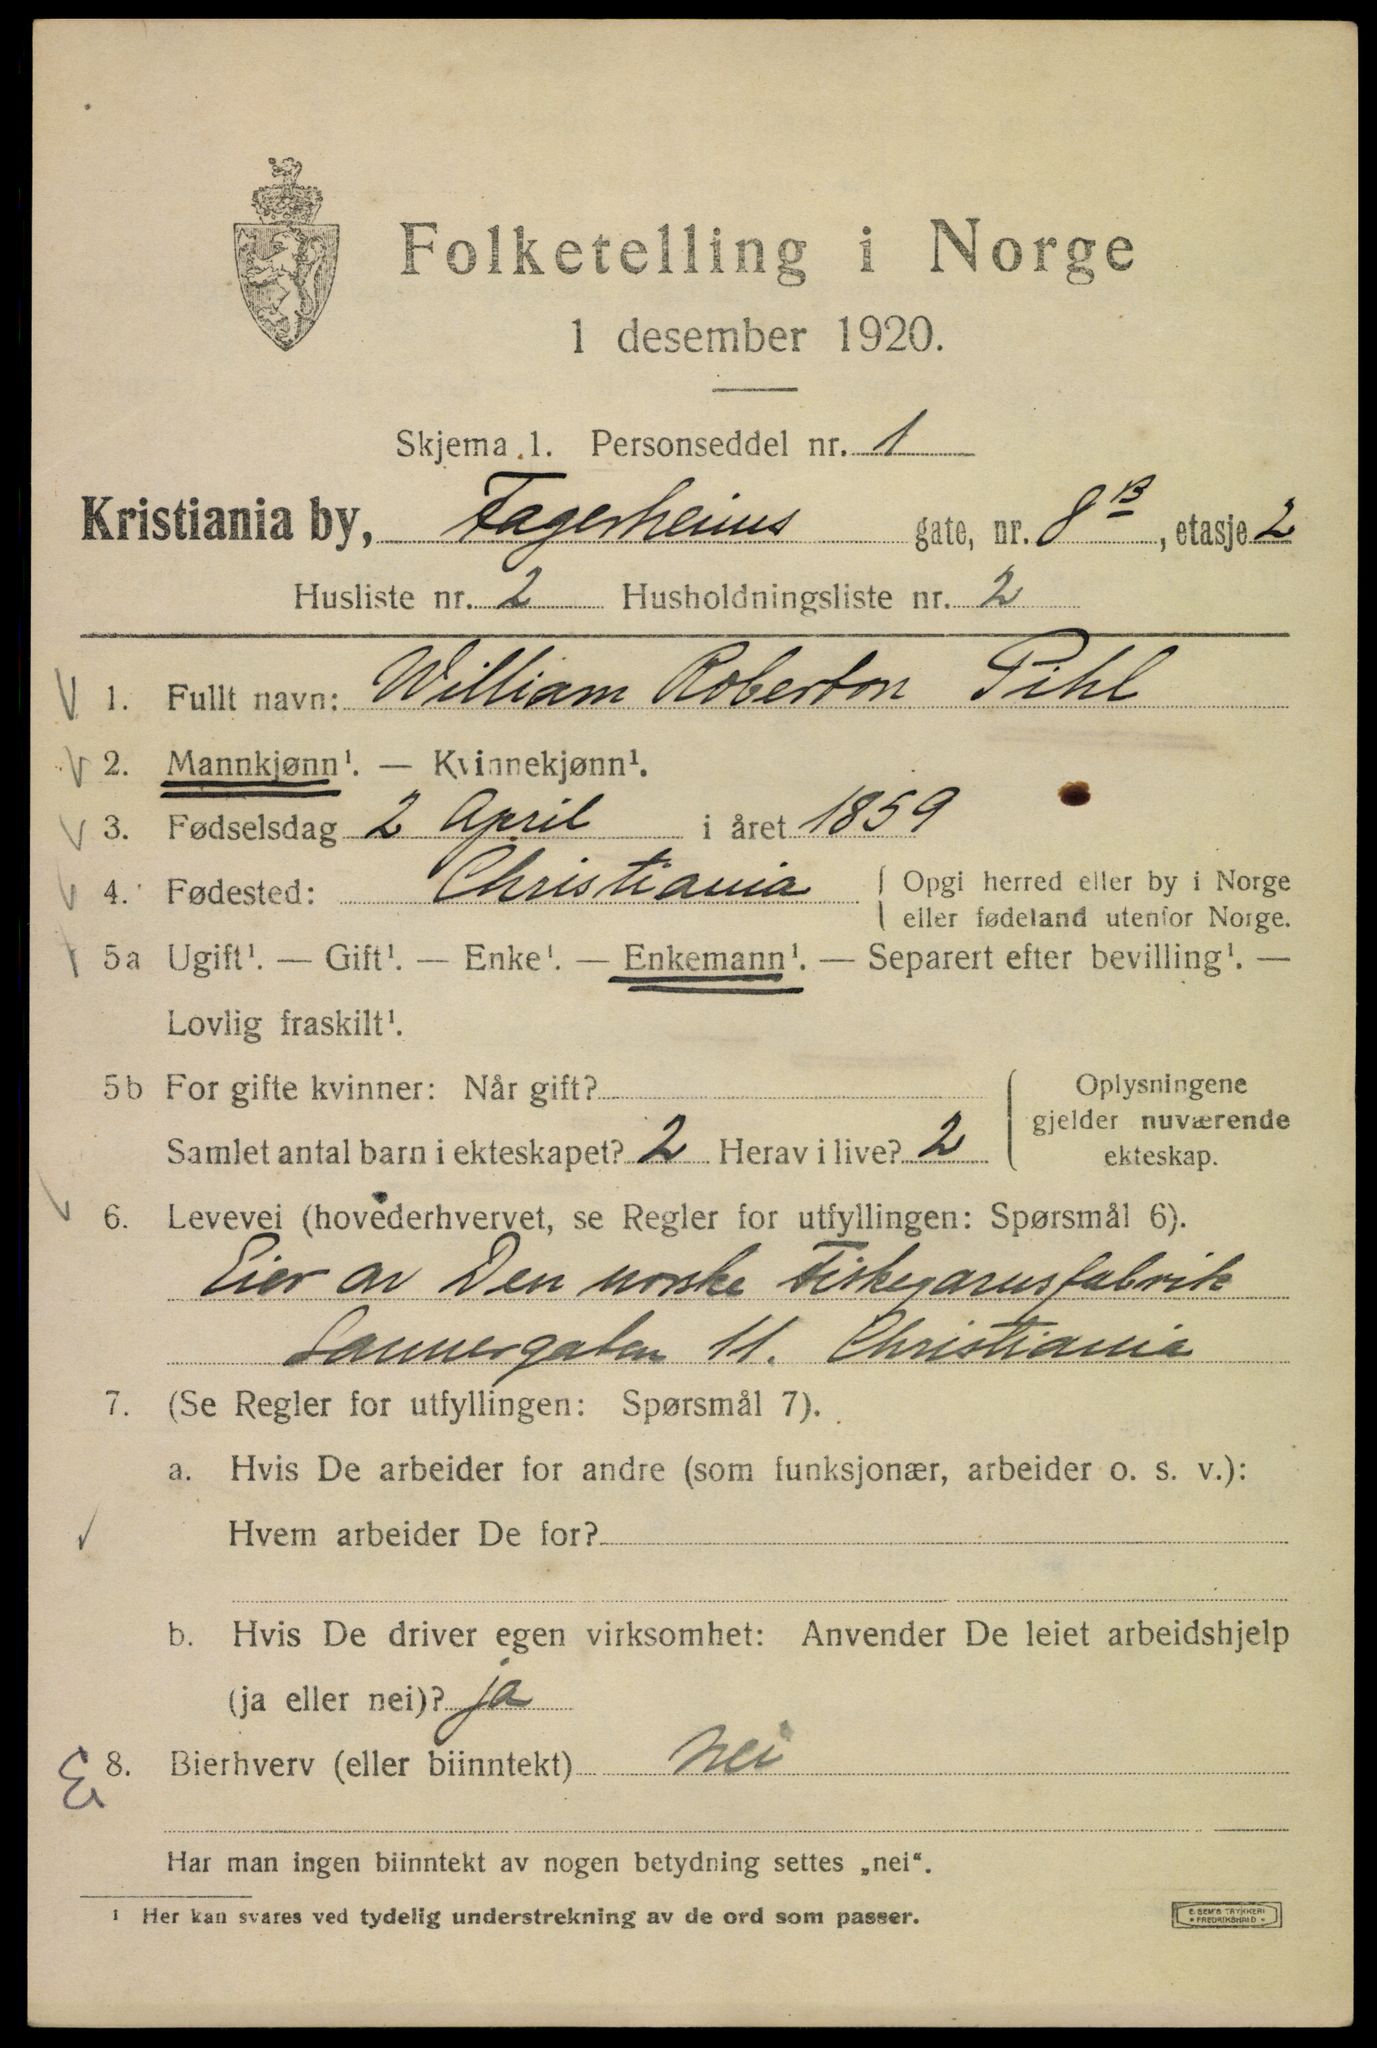 Folketelling i Norge
1 desember 1920.
Skjema 1. Personseddel nr. 1
Kristiania by, Fagerheims gate, nr. 8 B, etasje 2
Husliste nr. 2 Husholdningsliste nr. 2
1. Fullt navn: William Roberton Pihl
2. Mannkjønn¹. — Kvinnekjønn¹.
3. Fødselsdag 2 April i året 1859
4. Fødested: Christiania { Opgi herred eller by i Norge
eller fødeland utenfor Norge.
5a Ugift¹. — Gift¹. — Enke¹. — Enkemann¹. — Separert efter bevilling¹. —
Lovlig fraskilt¹.
5b For gifte kvinner: Når gift?
Samlet antal barn i ekteskapet? 2 Herav i live? 2
Oplysningene
gjelder nuværende
ekteskap.
6. Levevei (hovederhvervet, se Regler for utfyllingen: Spørsmål 6).
Eier av Den norske Fiskegarnsfabrik
Sannergaten 11. Christiania
7. (Se Regler for utfyllingen: Spørsmål 7).
a. Hvis De arbeider for andre (som funksjonær, arbeider o. s. v.):
Hvem arbeider De for?
b. Hvis De driver egen virksomhet: Anvender De leiet arbeidshjelp
(ja eller nei)? ja
8. Bierhverv (eller biinntekt) nei
Har man ingen biinntekt av nogen betydning settes „nei“.
¹ Her kan svares ved tydelig understrekning av de ord som passer.
E. SEM'S TRYKKERI
• FREDRIKSHALD •